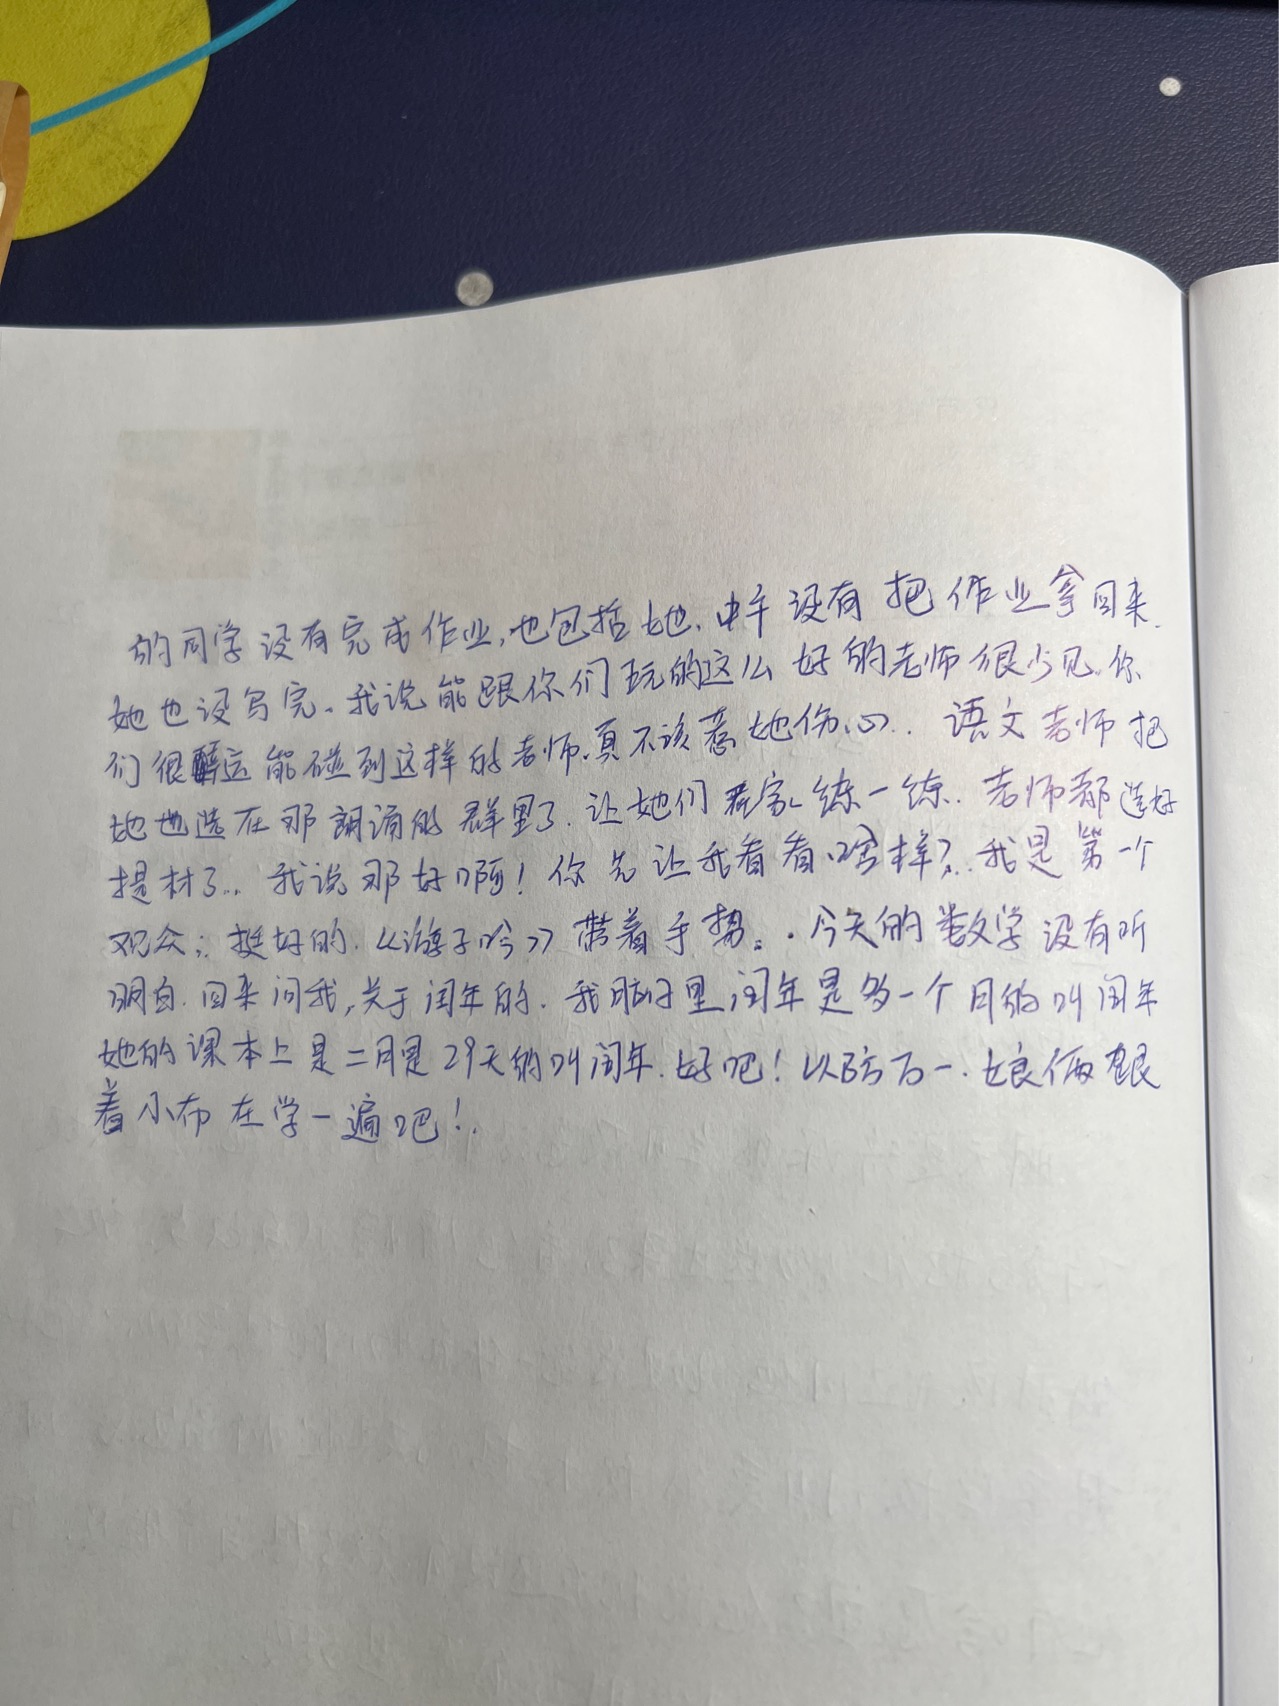 的同学没有完成作业,也包括她、中午没有把作业拿回来.
她也没写完。我说能跟你们玩的这么好的老师很少见.你
们很幸运能碰到这样的老师.真不该惹她伤心.. 语文老师把
她也选在那朗诵的群里了.让她们在家练一练.老师都选好
提材了.. 我说那好啊!你先让我看看啥样?.. 我是第一个
观众;挺好的.《游子吟》带着手势。.今天的数学没有听
明白.回来问我,关于闰年的.我脑子里闰年是多一个月的叫闰年
她的课本上是二月是29天的叫闰年.好吧!以防万一.娘俩跟
着小布在学一遍吧!.